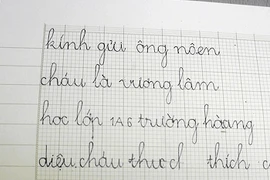 kính gửi ông nôen
cháu là vương lâm
học lớp 1A6 trường hoàng
diệu. cháu thích